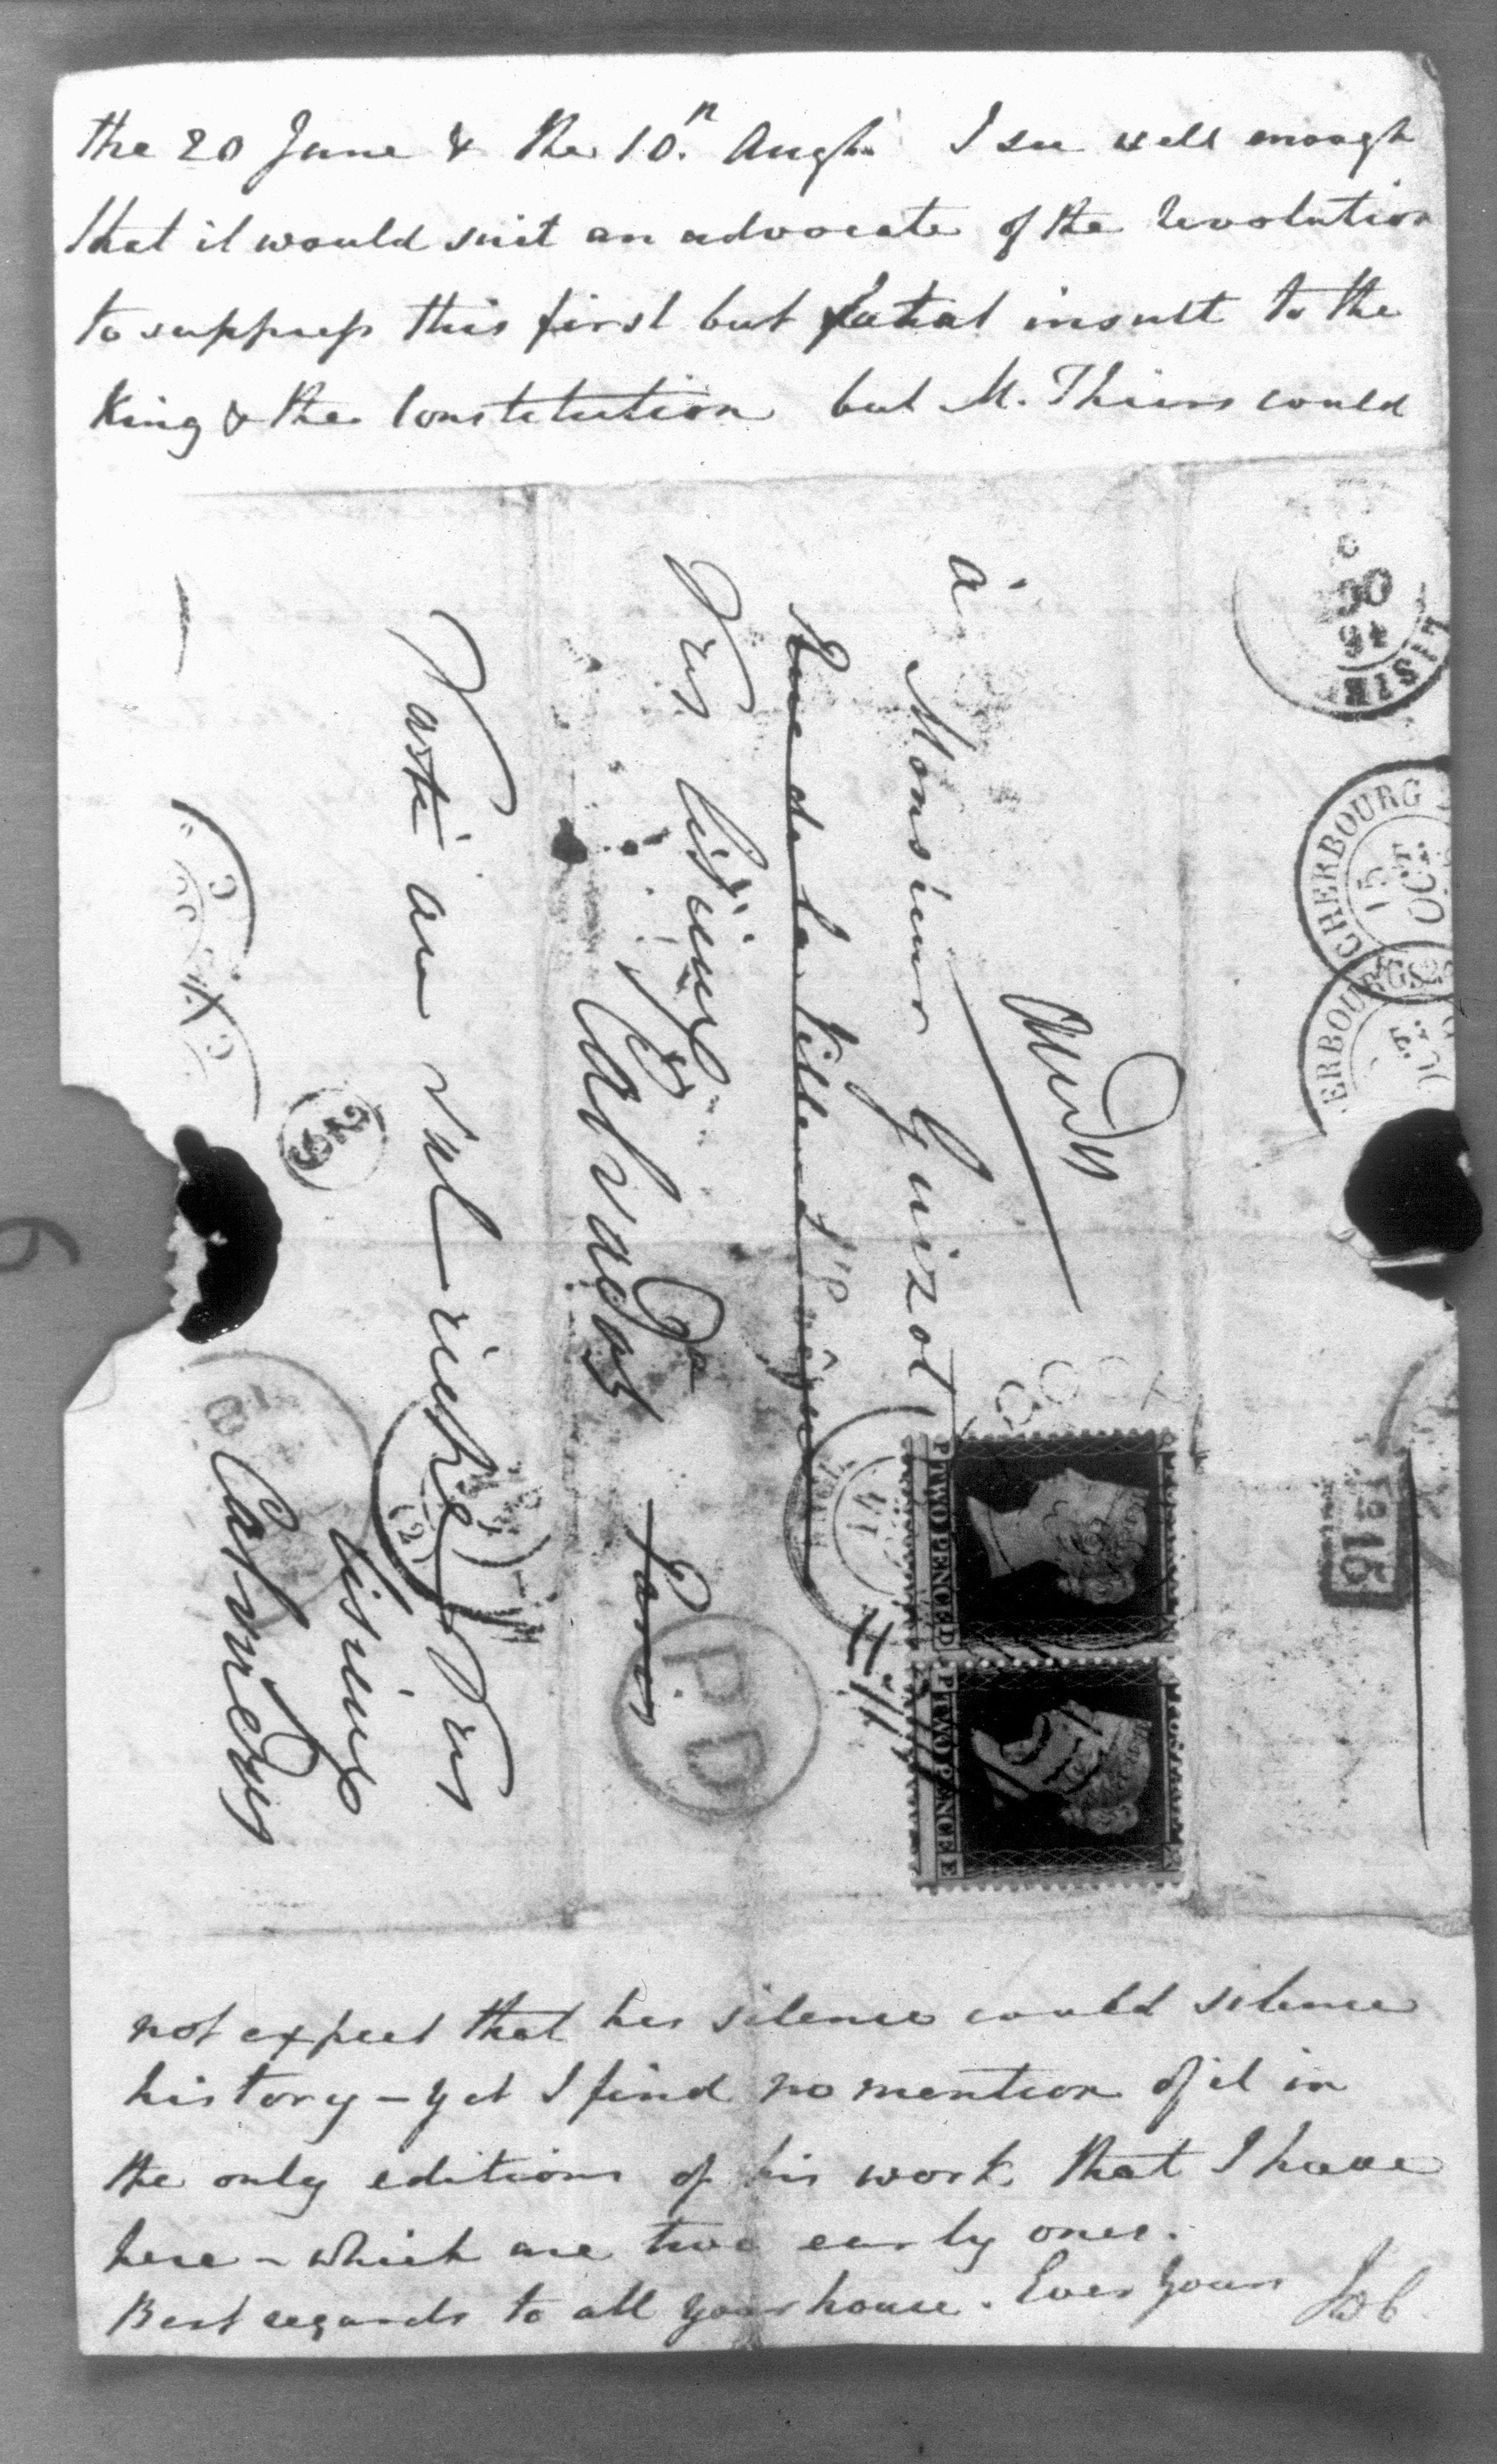 the 20 June & the 10.th Augt. I see well enough
that it would suit an advocate of the Revolution
to suppress this first but fatal insult to the
King & the Constitution but M. Thiers could
à
Monsieur Guizot
Rue de la Ville l'Evêque
Près Lisieux
Calvados
Paris
Parti au Val-richer Près
Lisieux
Calvados
P.D
TWO PENCE
TWO PENCE
LISIEUX
CHERBOURG
15
OCT.
ERBOURG
14
not expect that his silence could silence
history – yet I find no mention of it in
the only editions of his work that I have
here – which are two early ones.
Best regards to all your house. Ever yours